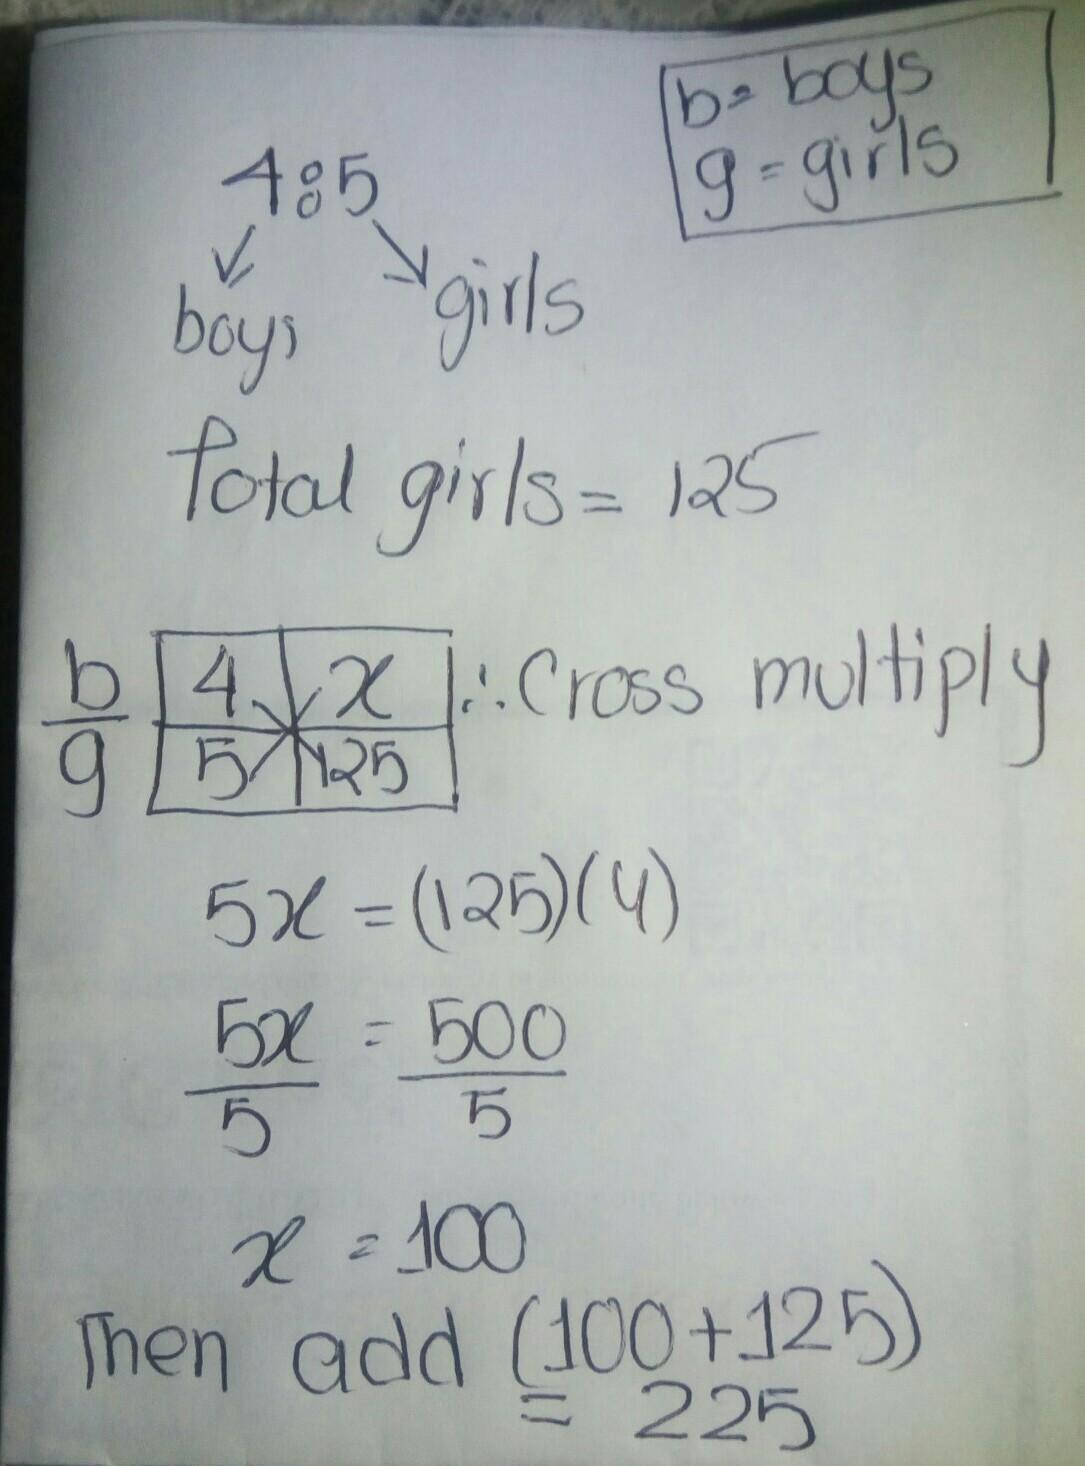 b= boys
g = girls
4:5
boys girls
Total girls = 125
b 4 x ∴ Cross multiply
g 5 125
5x = (125)(4)
5x = 500
5 5
x = 100
Then add (100+125)
= 225